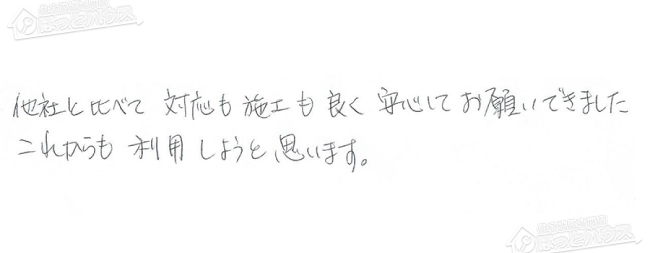 他社と比べて 対応も施工も良く 安心してお願いできました
これからも 利用しようと思います。